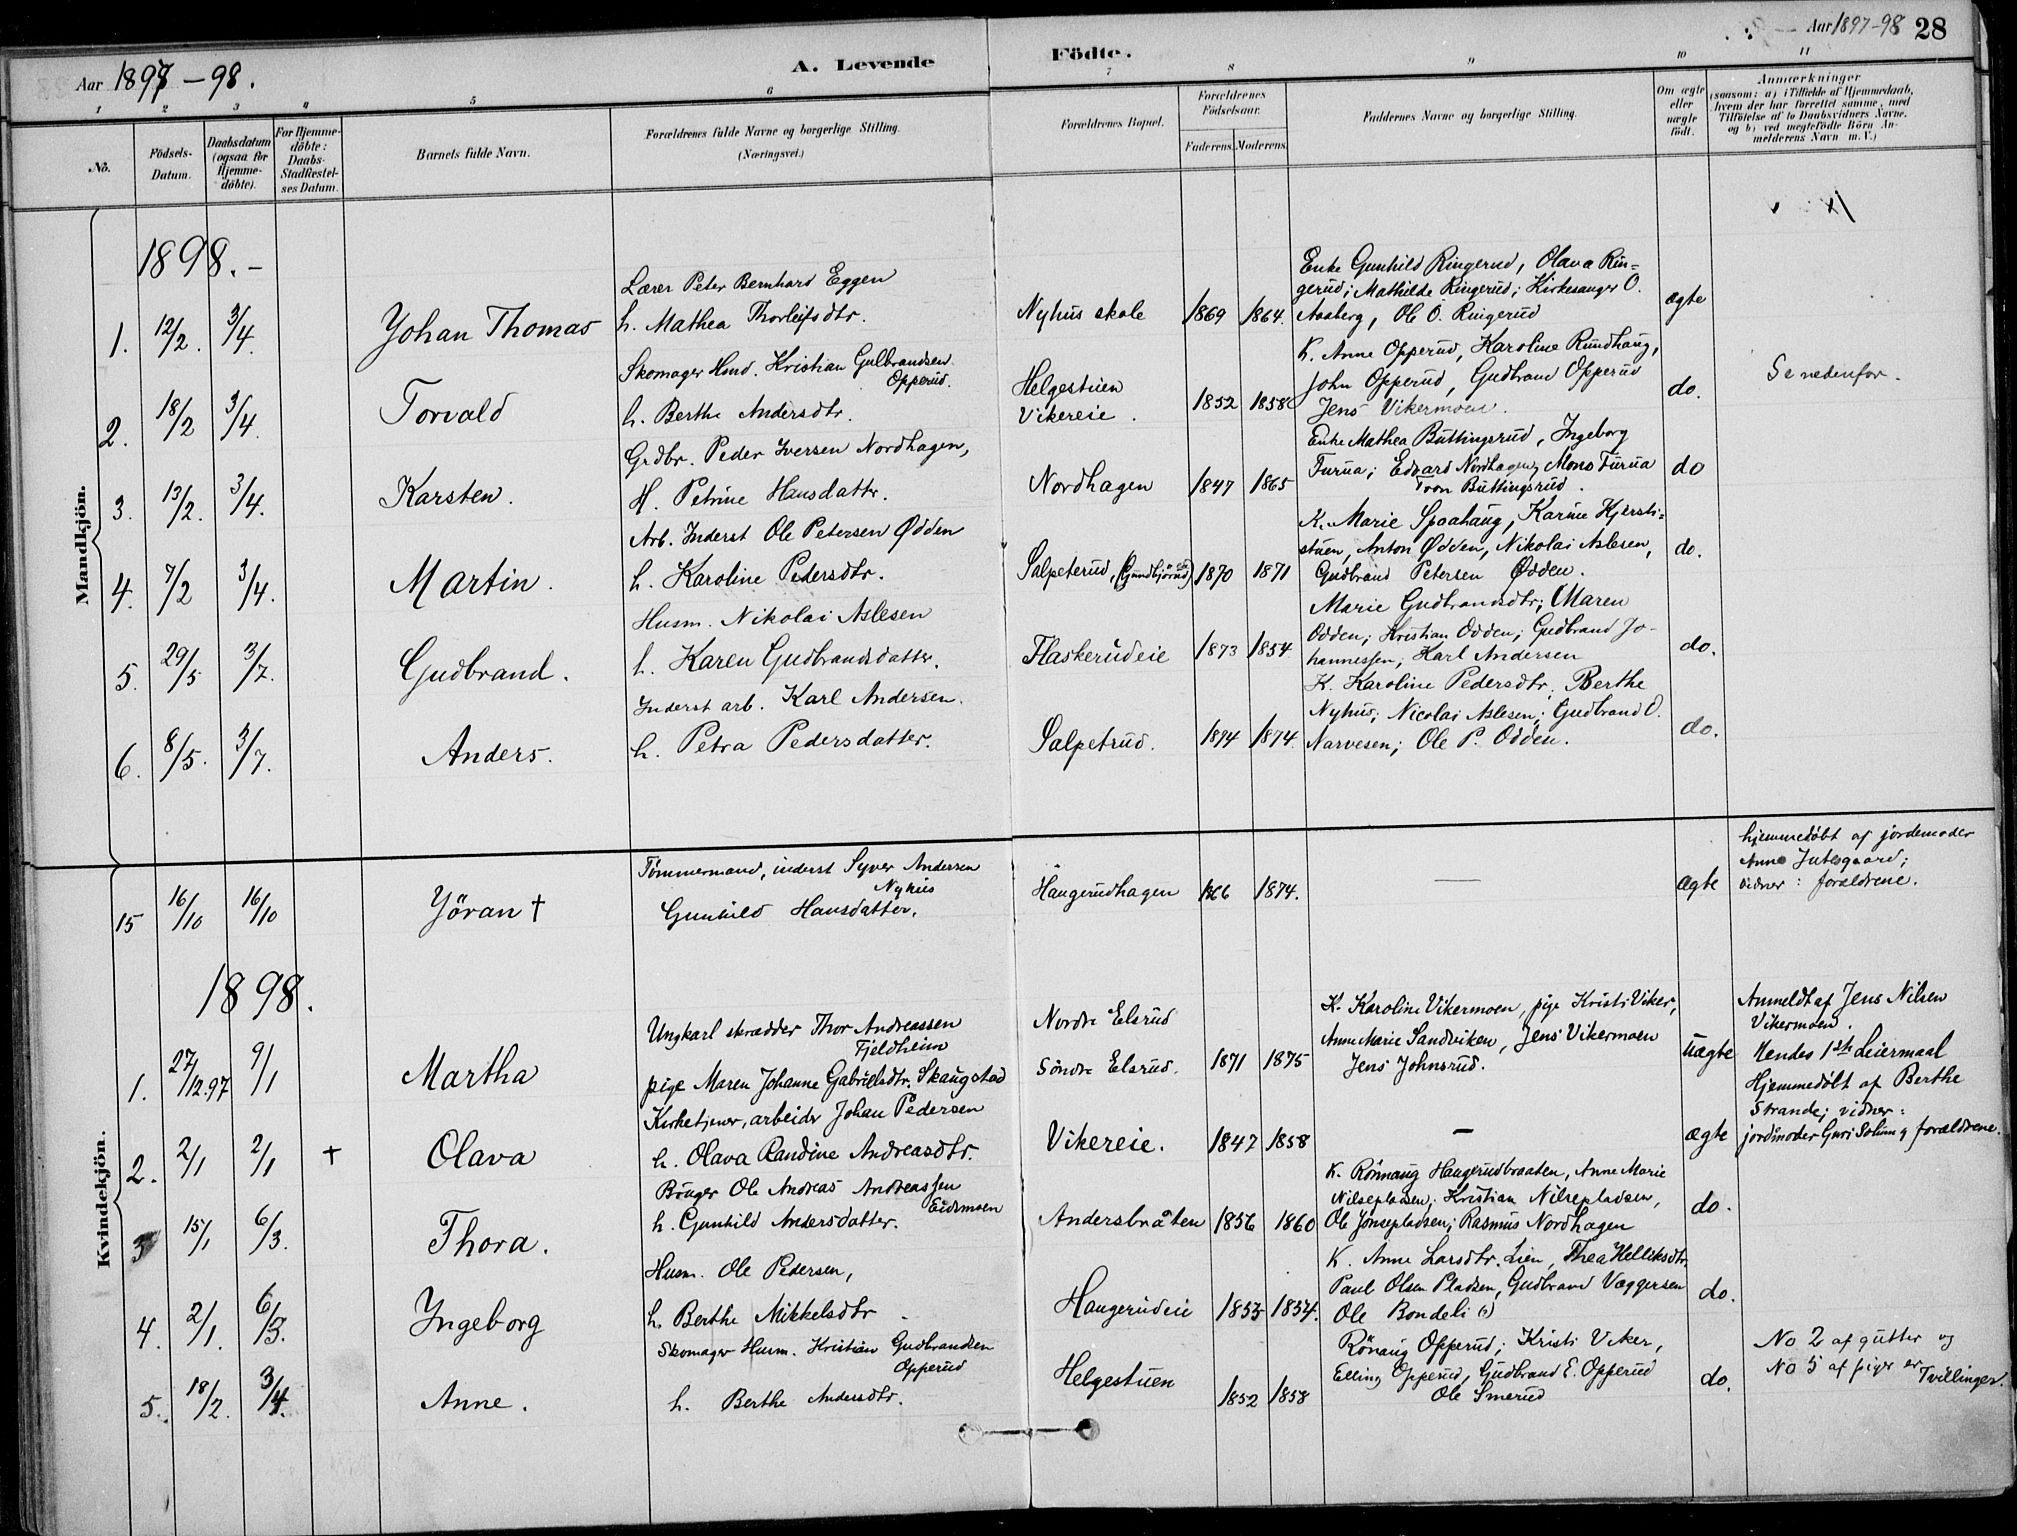 Aar 1897-98.
A. Levende Födte.
Aar 1897-98 28
1 2 3 4 5 6 7 8 9 10 11
No.
Födsels-Datum.
Daabsdatum (ogsaa for Hjemme-döbte).
For Hjemme-döbte: Daabs-Stadfæstel-ses Datum.
Barnets fulde Navn.
Forældrenes fulde Navne og borgerlige Stilling. (Næringsvei.)
Forældrenes Bopæl.
Forældrenes Födselsaar.
Faderens. Moderens.
Faddernes Navne og borgerlige Stilling.
Om ægte eller uægte födt.
Anmærkninger
(saasom: a) i Tilfælde af Hjemmedaab, hvem der har forrettet samme, med Tilföielse af to Daabsvidners Navne, og b) ved uægtefödte Börn Anmelderens Navn m. V.)
Mandkjön.
1898.-
1. 12/2. 3/4. Johan Thomas
Lærer Peter Bernhard Eggen
h. Mathea Thorleifsdtr.
Nyhus skole 1869 1864.
Enke Gunhild Ringerud, Olava Rin=
gerud; Mathilde Ringerud; Kirkesanger O.
Aaberg, Ole O. Ringerud
ægte
2. 18/2 3/4. Torvald
Skomager Hmd. Kristian Gulbrandsen
Opperud.
h. Berthe Andersdtr.
Helgestuen
Vikereie. 1852 1858
K. Anne Opperud, Karoline Rundhaug,
John Opperud, Gudbrand Opperud
Jens Vikermoen.
do.
Se nedenfor.
3. 13/2. 3/4. Karsten.
Grdbr. Peder Iversen Nordhagen,
H. Petrine Hansdatter.
Nordhagen 1847 1865
Enke Mathea Buttingsrud, Ingeborg
Furua; Edvard Nordhagen, Mons Furua
Toon Buttingsrud.
do
4. 7/2 3/4. Martin.
Arb. Inderst Ole Petersen Ødden
h. Karoline Pedersdtr.
Salpeterud, (Gundbjörud) 1870 1871
K. Marie Spoahaug, Karine Kjersti=
stuen, Anton Ødden, Nikolai Aslesen,
Gudbrand Petersen Ødden.
do.
5. 29/5 3/7. Gudbrand.
Husm. Nikolai Aslesen
h. Karen Gudbrandsdatter.
Flaskerudeie 1873 1854
Marie Gudbrandsdtr; Maren
Odden; Kristian Odden; Gudbrand Jo-
hannessen; Karl Andersen
do.
6. 8/5. 3/7. Anders.
Inderst arb. Karl Andersen.
h. Petra Pedersdatter.
Salpetrud. 1894 1874.
K. Karoline Pedersdtr. Berthe
Nyhus; Nicolai Aslesen; Gudbrand O.
Narvesen; Ole P. Odden.
do.
15 16/10 16/10 Jöran †
Tömmermand, inderst Syver Andersen
Nyhus
Gunhild Hansdatter.
Haugerudhagen 1866 1874.
—
Ægte
hjemmedøbt af jordemoder
Anne Jutesgaard;
vidner: forældrene.
Kvindekjön.
1898.
1. 27/12.97 9/1 Martha
Ungkarl skrædder Thor Andreassen
Fjeldheim
pige Maren Johanne Gabrielsdtr. Skaugstad
Nordre Elsrud
Söndre Elsrud. 1871 1875
K. Karoline Vikermoen, pige Kristi Viker,
Anne Marie Sandviken, Jens Vikermoen
Jens Johnsrud.
Uægte
Anmeldt af Jens Nilsen
Vikermoen.
Mendes 1ste Leiermaal
2. 2/1 2/1 † Olava
Kirketjener, arbeider Johan Pedersen
h. Olava Randine Andreasdtr.
Vikereie. 1847 1858
—
ægte
Hjemmedøbt af Berthe
Strande; vidner:
jordmoder Guri Solum & forældrene.
3 15/1 6/3. Thora.
Böuger Ole Andreas Andreassen
Eidsmoen
h. Gunhild Andersdatter.
Andersbråten 1856 1860
K. Rönnaug Haugerudbraaten, Anne Marie
Nilsepladsen; Kristian Nilsepladsen,
Ole Jönsepladsen; Rasmus Nordhagen
do.
4. 2/1. 6/3. Ingeborg
Husm. Ole Pedersen,
h. Berthe Mikkelsdtr
Haugerudeie 1853 1854.
K. Anne Larsdtr. Lien, Thea Helliksdtr.
Paul Olsen Pladsen, Gudbrand Væggersen
Ole Bondeli
do.
5. 18/2. 3/4. Anne.
Skomager Husm. Kristian Gudbrandsen
Opperud
h. Berthe Andersdtr.
Helgestuen 1852 1858
Rönaug Opperud; Kristi Viker,
Elling Opperud, Gudbrand E. Opperud
Ole Smerud
do.
No 2 af gutter og
No 5 af piger er Tvillinger.